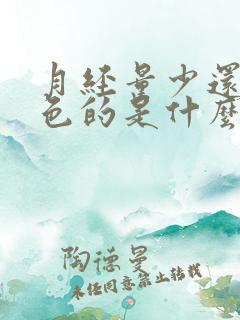 月经量少还
色的是什么
陶德曼
未经同意禁止转载